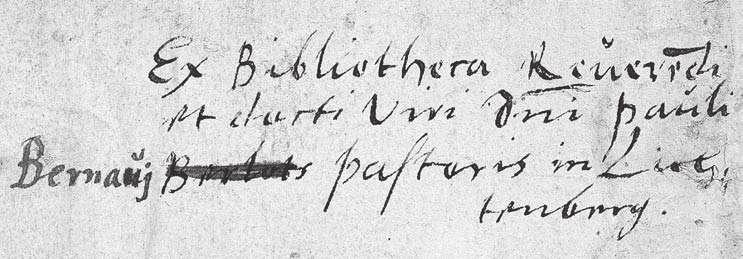 Ex Bibliotheca Reŭerēdi
et docti Viri Dn̄i Paŭli
Bernaŭj Bertots pastoris in Liech-
tenberg.